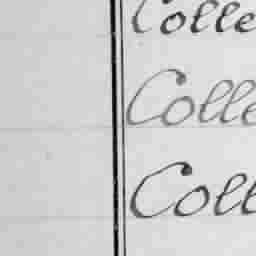 Colle
Colle
Coll